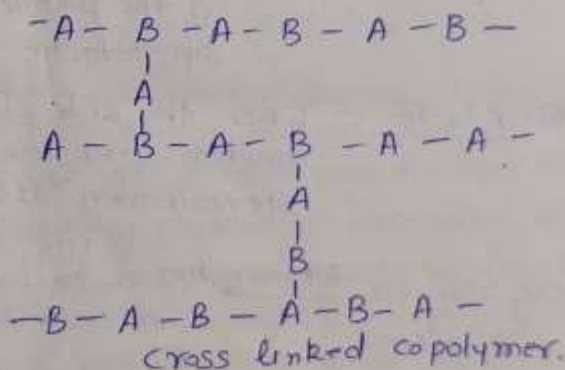 -A- B -A- B - A - B -
|
A
|
A - B - A - B - A - A -
|
A
|
B
|
-B- A -B- A -B- A -
Cross linked copolymer.